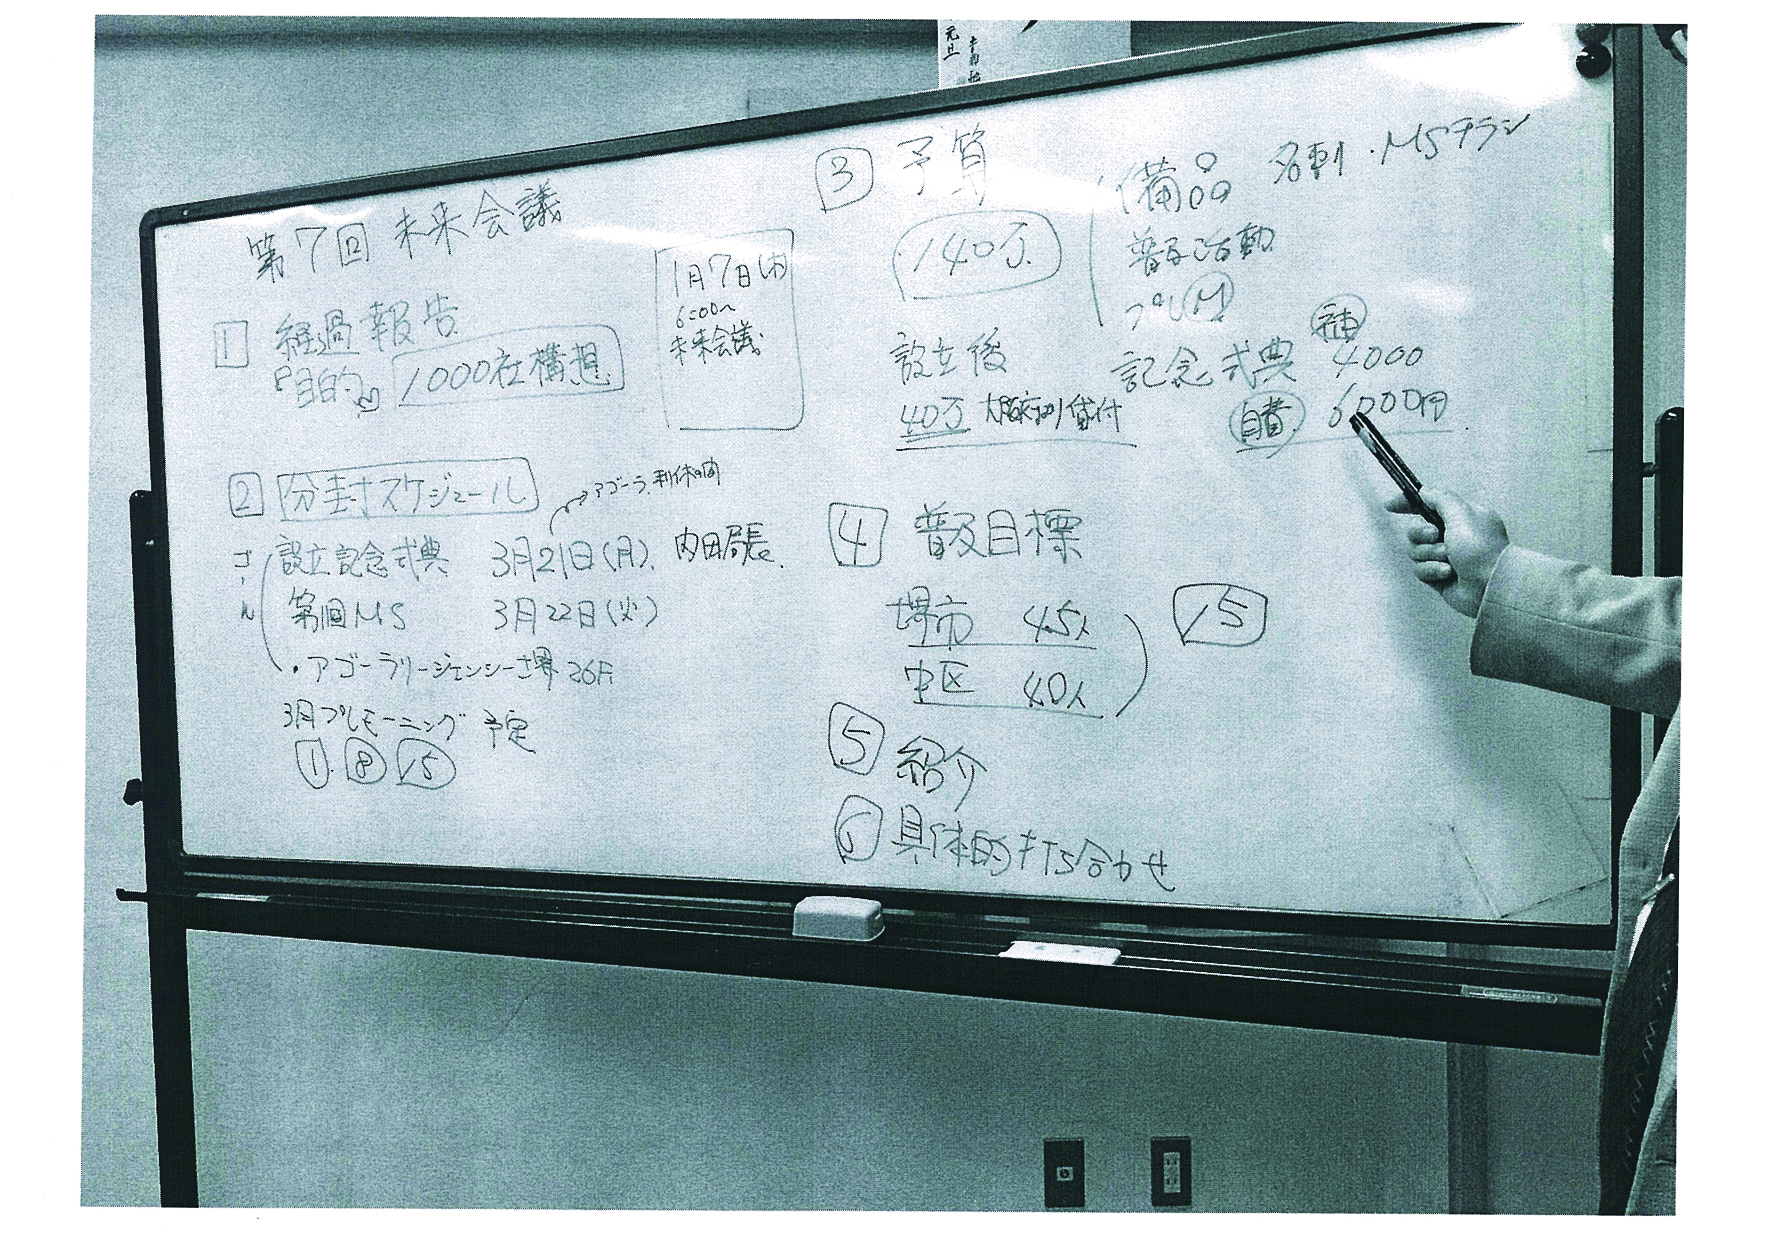 元旦
第7回 未来会議
1月7日(木)
6:00〜
未来会議
1 経過報告
『目的』 1000社構想
2 分封スケジュール
アゴーラ 利休の間
ゴール
設立記念式典 3月21日(月) 内田局長
第1回MS 3月22日(火)
・アゴーラリージェンシー堺 26F
3月プレモーニング 予定
1 8 15
3 予算
140万
備品 名刺・MSチラシ
普及活動
プレM
設立後
40万 大阪府より貸付
記念式典 補 4000
自費 6000円
4 普及目標
堺市 45人
中区 40人
15
5 紹介
6 具体的打ち合わせ